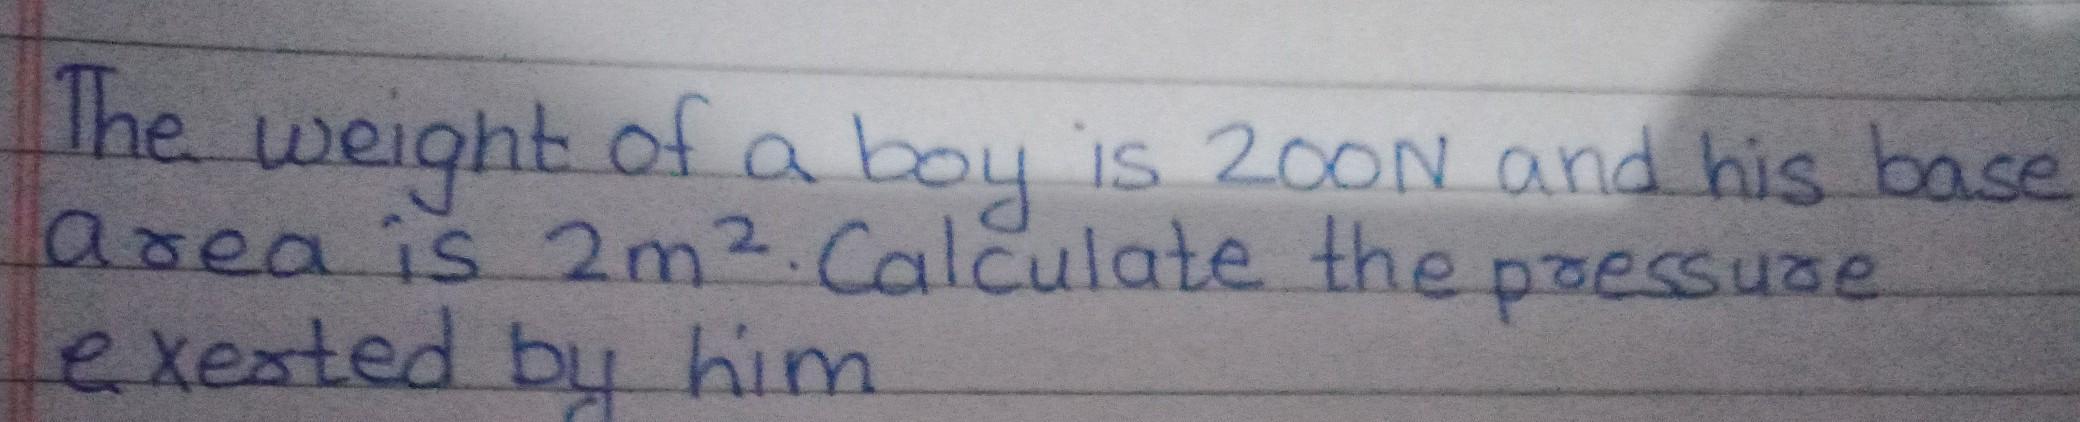 The weight of a boy is 200N and his base
area is 2m². Calculate the pressure
exerted by him